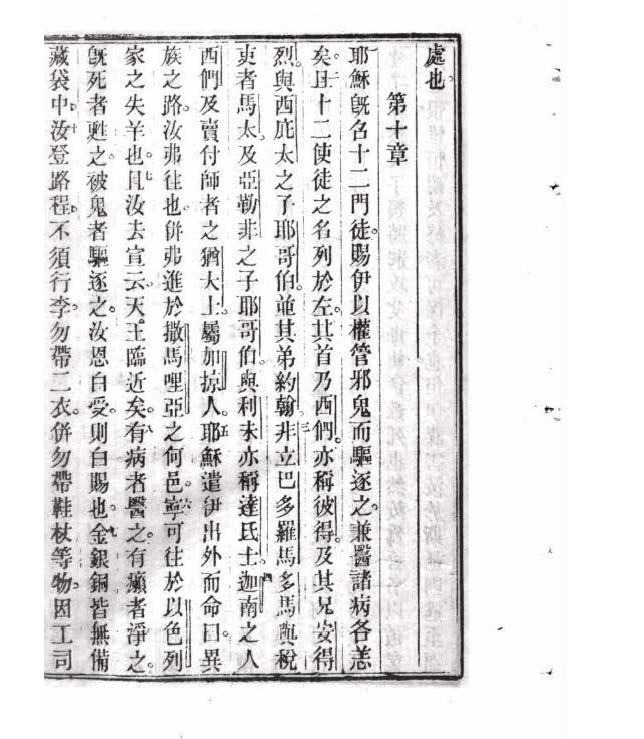 處也。
第十章
耶穌既名十二門徒。賜伊以權管邪鬼而驅逐之。兼醫諸病各恙
矣。二且十二使徒之名列於左。其首乃西們。亦稱彼得。及其兄安得
烈。與西庇太之子耶哥伯。並其弟約翰。三非立巴多羅馬多馬與稅
吏者馬太。及亞勒非之子耶哥伯。與利未亦稱達氏士。四迦南之人
西們。及賣付師者之猶大士。屬加掠人。五耶穌遣伊出外而命曰。異
族之路。汝弗往也。併弗進於撒馬哩亞之何邑。六寧可往於以色列
家之失羊也。七且汝去宣云。天王臨近矣。八有病者醫之。有癩者淨之。
既死者甦之。被鬼者驅逐之。汝恩白受。則白賜也。九金銀銅皆無備
藏袋中。十汝登路程。不須行李。勿帶二衣。併勿帶鞋杖等物。因工司